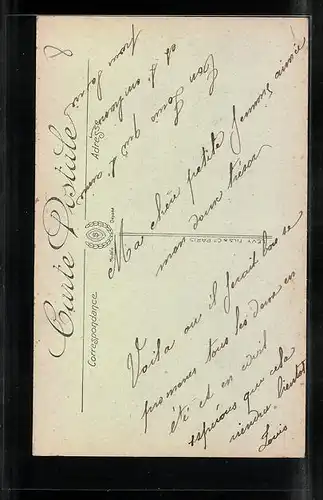 Carte Postale
Correspondance
Adresse
LEVY FILS & Cie PARIS
8
Ma chère petite femme aimée
mon doux trésor
Voilà où il ferait bon se
promener tous les deux en
été et en avril
espérons que cela
viendra bientôt
Louis
Ton Louis
qui t'aime
et t'
pour la vie